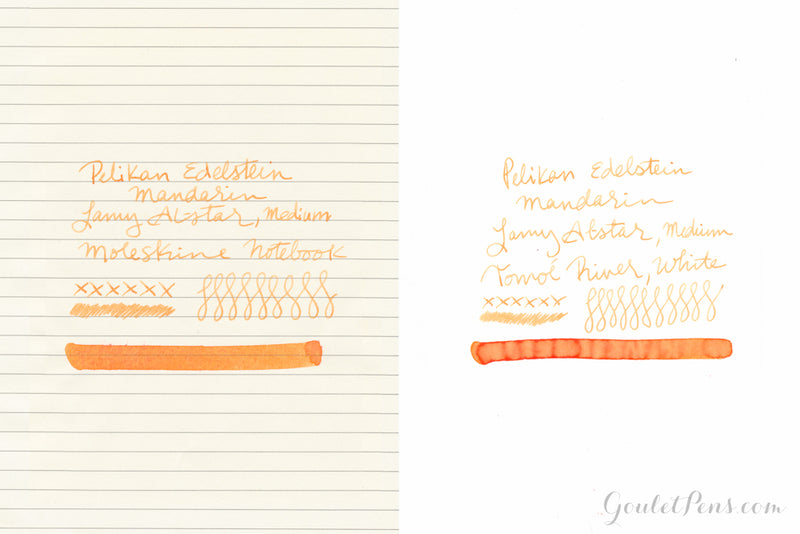 Pelikan Edelstein
Mandarin
Lamy Al-star, Medium
Moleskine Notebook
xxxxxx
Pelikan Edelstein
Mandarin
Lamy Alstar, Medium
Tomoé River, White
xxxxxx
GouletPens.com